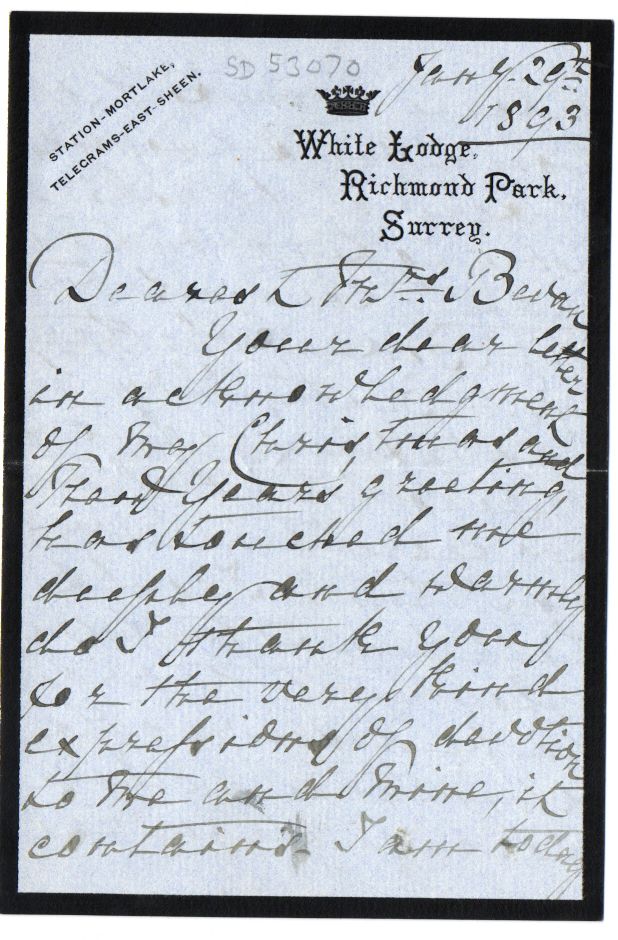 STATION-MORTLAKE,
TELEGRAMS-EAST-SHEEN.
SD 53070
Jany. 29th
1893
White Lodge,
Richmond Park,
Surrey.
Dearest Mrs Bevan
Your dear letter
in acknowledgment
of my Christmas and
New Years greeting,
has touched me
deeply and warmly
do I thank you
for the very kind
expressions of devotion
to me and mine, it
contains. I am today